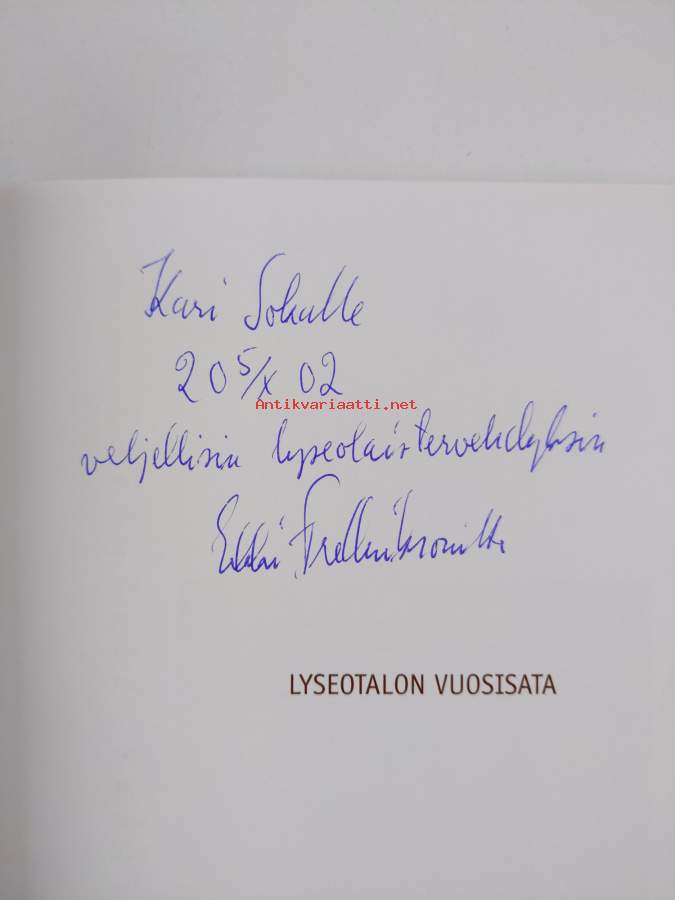 Kari Sokalle
20 5/X 02
Antikvariaatti.net
veljellisin lyseolaistervehdyksin
Erkki Fredriksonilta
LYSEOTALON VUOSISATA